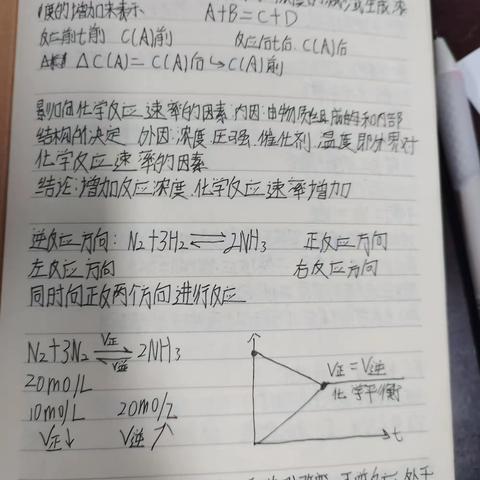 度的增加来表示 A+B=C+D
反应前t前 C(A)前 反应后t后 C(A)后
△C(A)=C(A)后↪C(A)前
影响化学反应速率的因素:内因:由物质性质和内部
结构所决定 外因:浓度.压强.催化剂.温度即外界对
化学反应速率的因素
结论:增加反应浓度.化学反应速率增加
逆反应方向: N₂+3H₂⇌2NH₃ 正反应方向
左反应方向 右反应方向
同时向正反两个方向进行反应
N₂+3N₂ V正⇌V逆 2NH₃
20mo/L
10mo/L 20mo/L
V正↓ V逆↗
V正=V逆
化学平衡
t